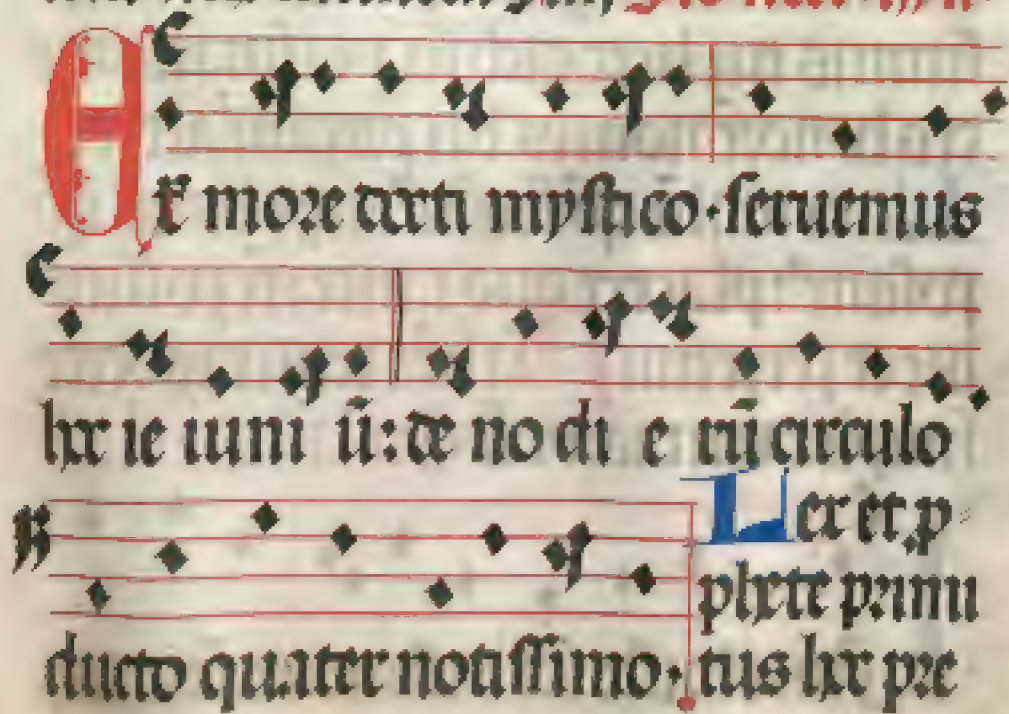 Ex more docti mystico · seruemus
hoc ie iuni ū: de no di e rū circulo
ducto quater notissimo ·
Lex et p
phete primi
tus hoc pre